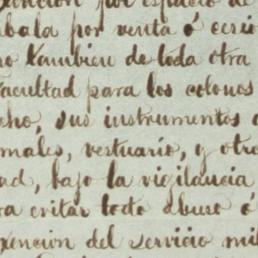 por espacio de
bala por venta ó cesio
no tambien de toda otra
facultad para los colonos
cho, sus instrumentos
males, vestuario, y otro
ad, bajo la vigilancia
ra evitar todo abuso ó
xencion del servicio mil